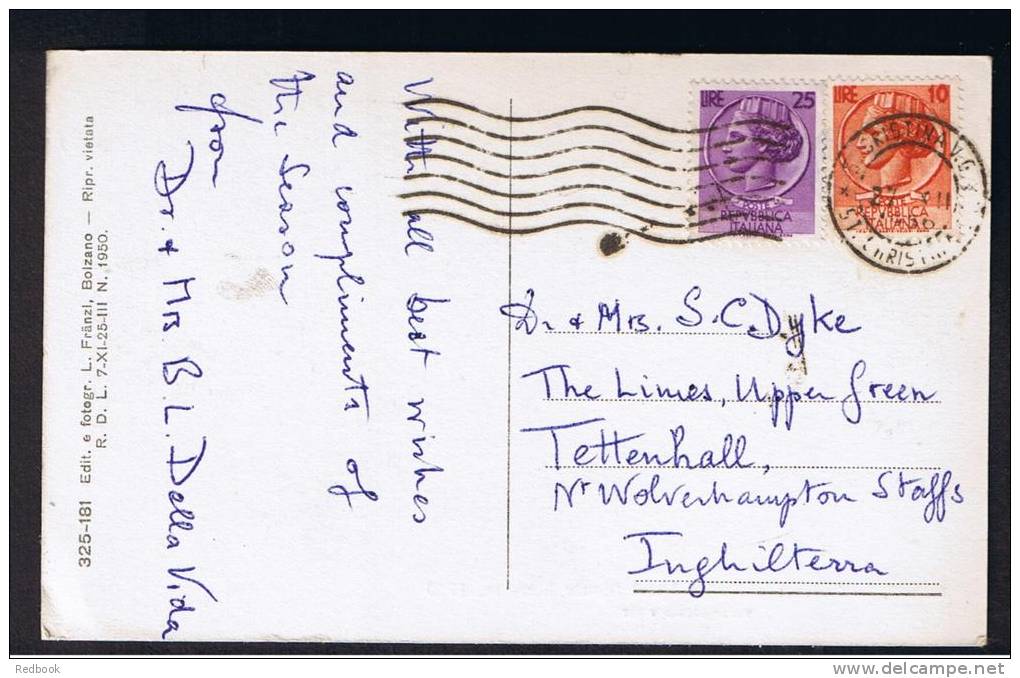 With all best wishes
and compliments of
the Season
from
Dr. & Mrs B. L. Della Vida
325-181 Edit. e fotogr. L. Fränzl, Bolzano — Ripr. vietata
R. D. L. 7-XI-25-III N. 1950.
LIRE 25
POSTE
REPVBBLICA
ITALIANA
LIRE 10
REPVBBLICA
ITALIANA
Dr. & Mrs. S. C. Dyke
The Limes, Upper Green
Tettenhall,
Nr Wolverhampton Staffs
Inghilterra
Redbook
www.delcampe.net